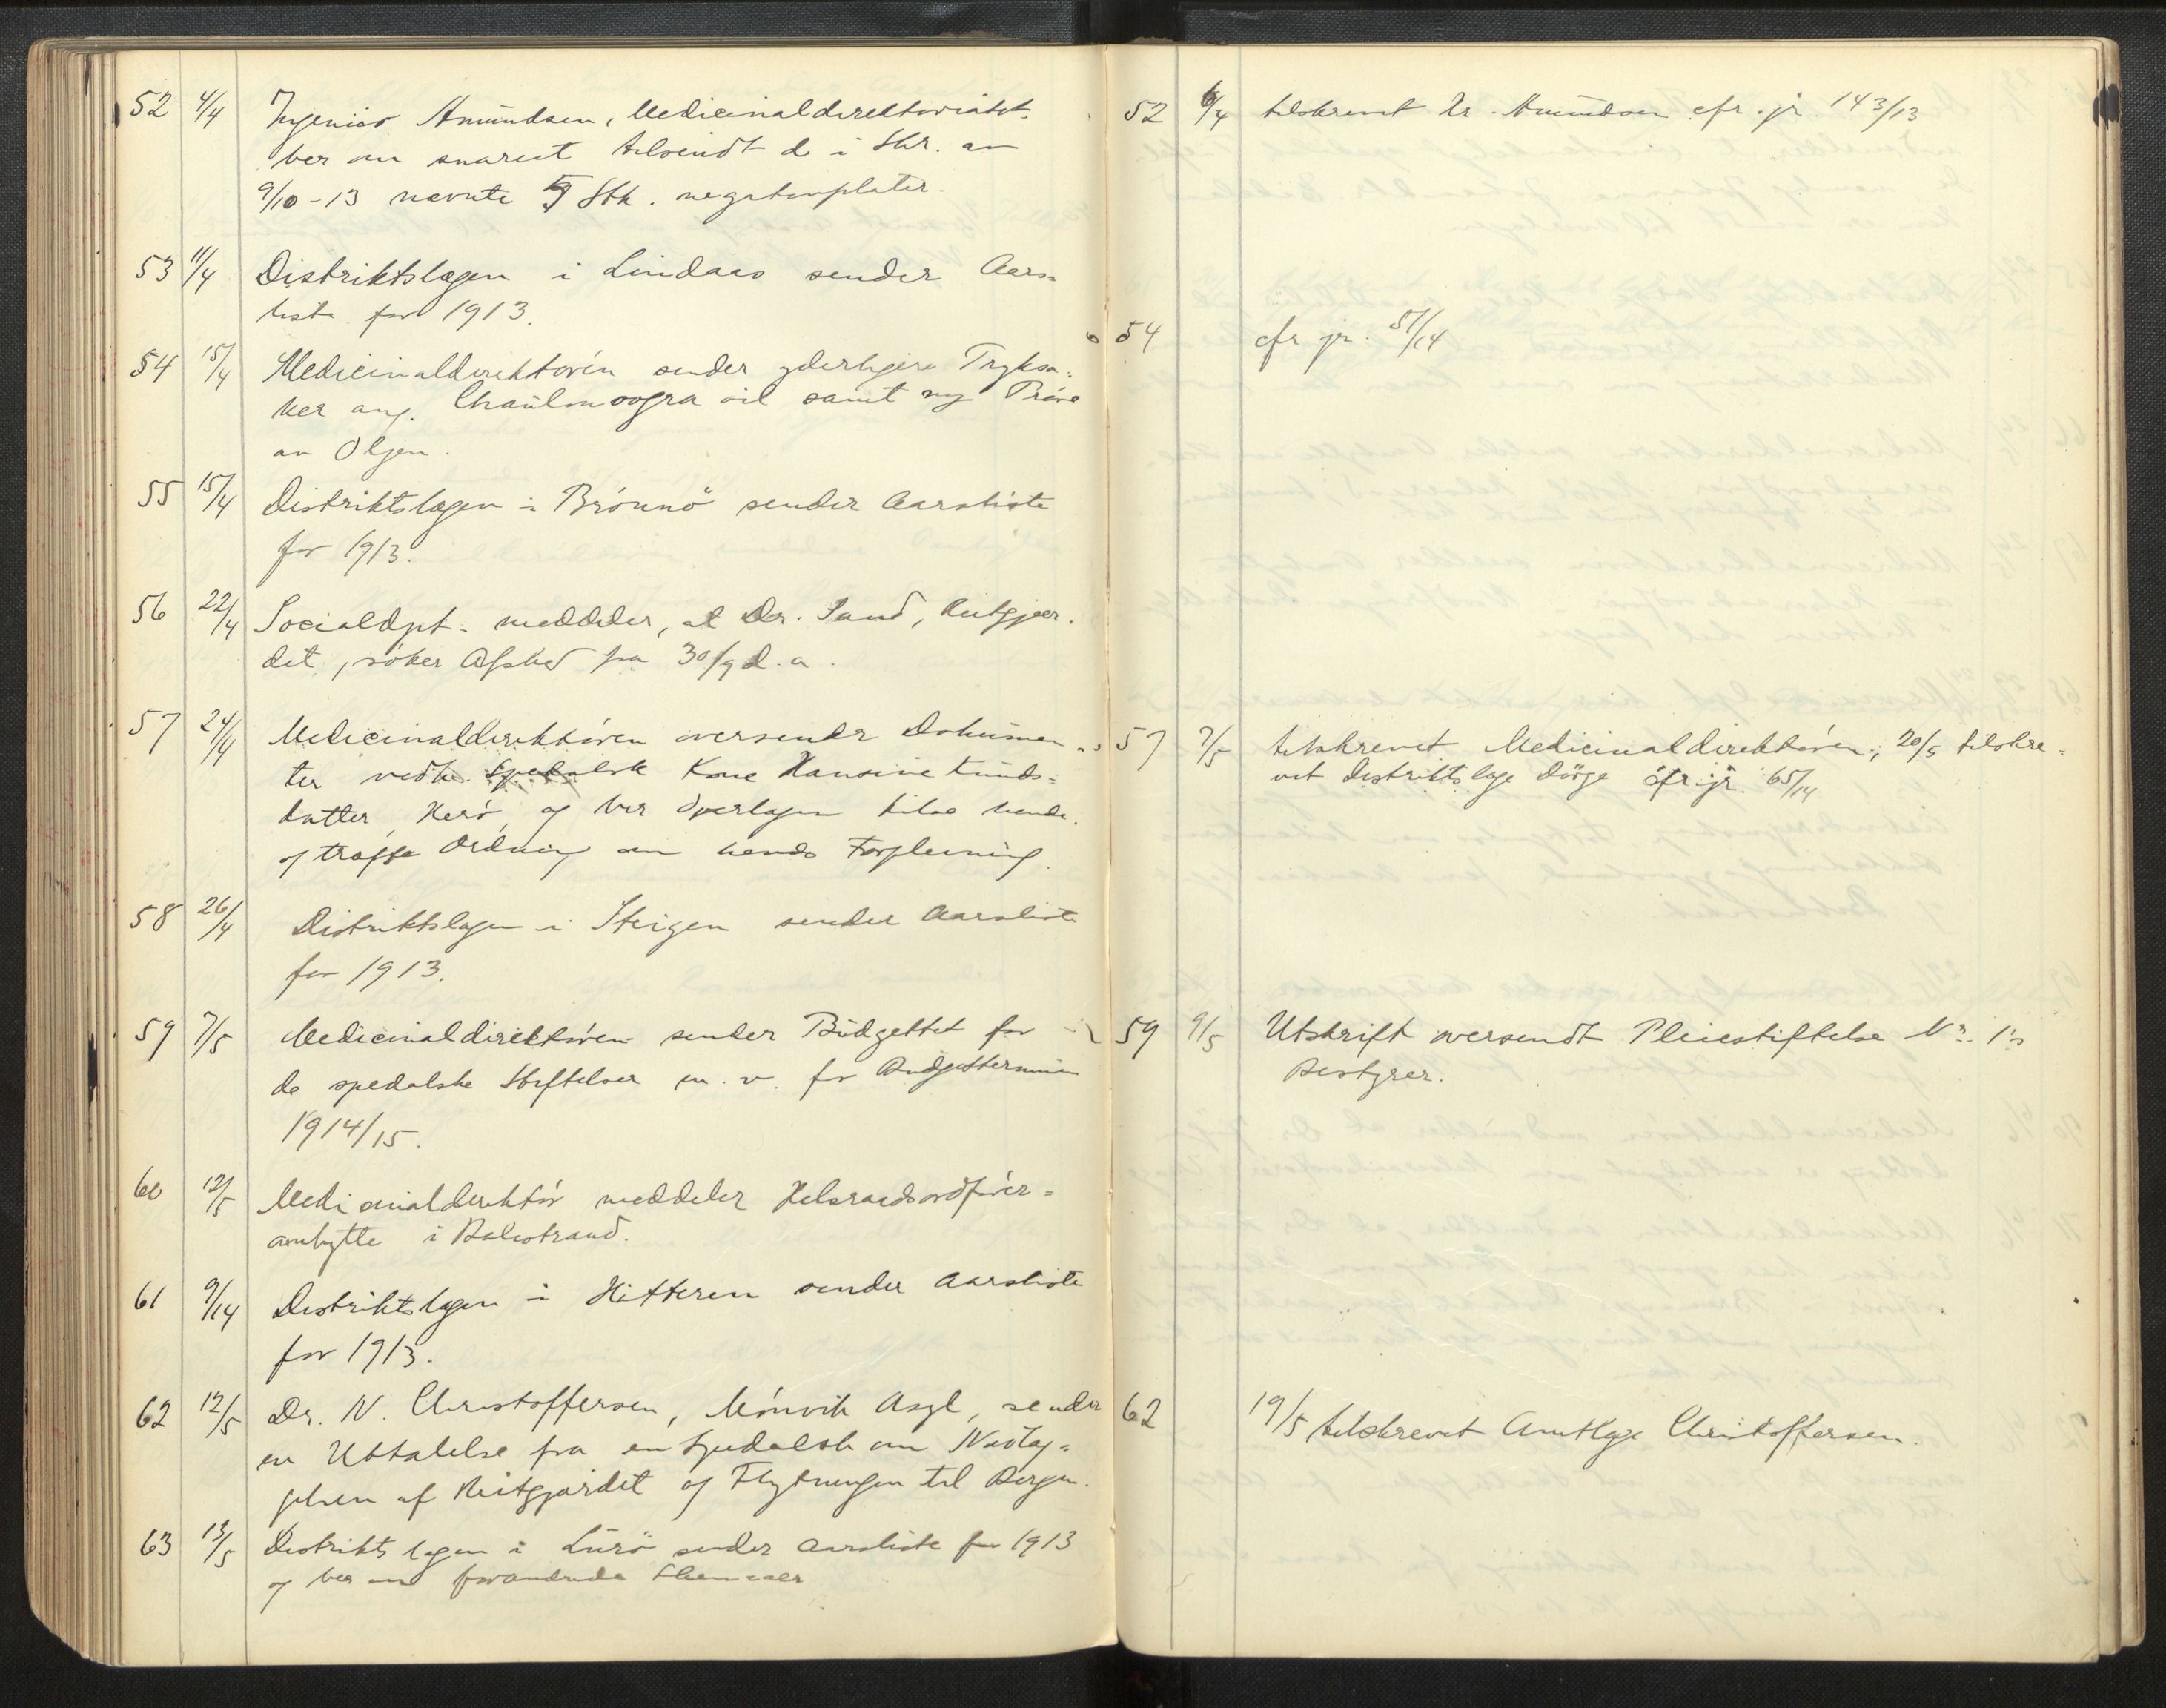 52 4/4 Ingeniør Amundsen, Medicinaldirektoriatet.
ber om snarest tilsendt de i Skr. av
9/10-13 nævnte 5 Stk. negativplater.
53 11/4 Distriktslægen i Lindaas sender Aars=
liste for 1913.
54 15/4 Medicinaldirektøren sender yderligere Tryksa=
ker ang. Chaulmoogra oil samt ny Prøve
av Oljen.
55 15/4 Distriktslægen i Brønnö sender Aarsliste
for 1913.
56 22/4 Socialdpt. meddeler, at Dr. Sand, Reitgjær.
det, søker Afsked fra 30/9 d. a.
57 24/4 Medicinaldirektøren oversender Dokumen
ter vedk. spedalsk Kone Hansine Knuds=
datter, Herø, og ber Overlægen tilse hende.
og træffe Ordning om hends Forpleining.
58 26/4 Distriktslægen i Steigen sender Aarsliste
for 1913.
59 7/5 Medicinaldirektøren sender Büdgettet for
de spedalske Stiftelser m. v. for Budgettermin
1914/15.
60 12/5 Medicinaldirektør meddeler Helseraadsordfører=
ombytte i Balestrand.
61 9/14 Distriktslægen i Hitteren sender Aarsliste
for 1913.
62 12/5 Dr. N. Christoffersen, Mónvik Asyl, sender
en Uttalelse fra en Spedalsk om Nedlæg=
gelsen af Reitgjærdet og Flytningen til Bergen.
63 13/5 Distriktslægen i Lurö sender Aarsliste for 1913
og ber om forandrede Skemaer
52 6/4 tilskrevet Hr. Amundsen cfr. jr. 143/13
54 cfr jr. 51/14
57 7/5 tilskrevet Medicinaldirektøren; 20/5 tilskre=
vet Distriktslæge cfr. jr. 65/14
59 9/5 Utskrift oversendt Pleiestiftelse Nr. 1's
Bestyrer.
62 19/5 tilskrevet Amtlæge Christoffersen.